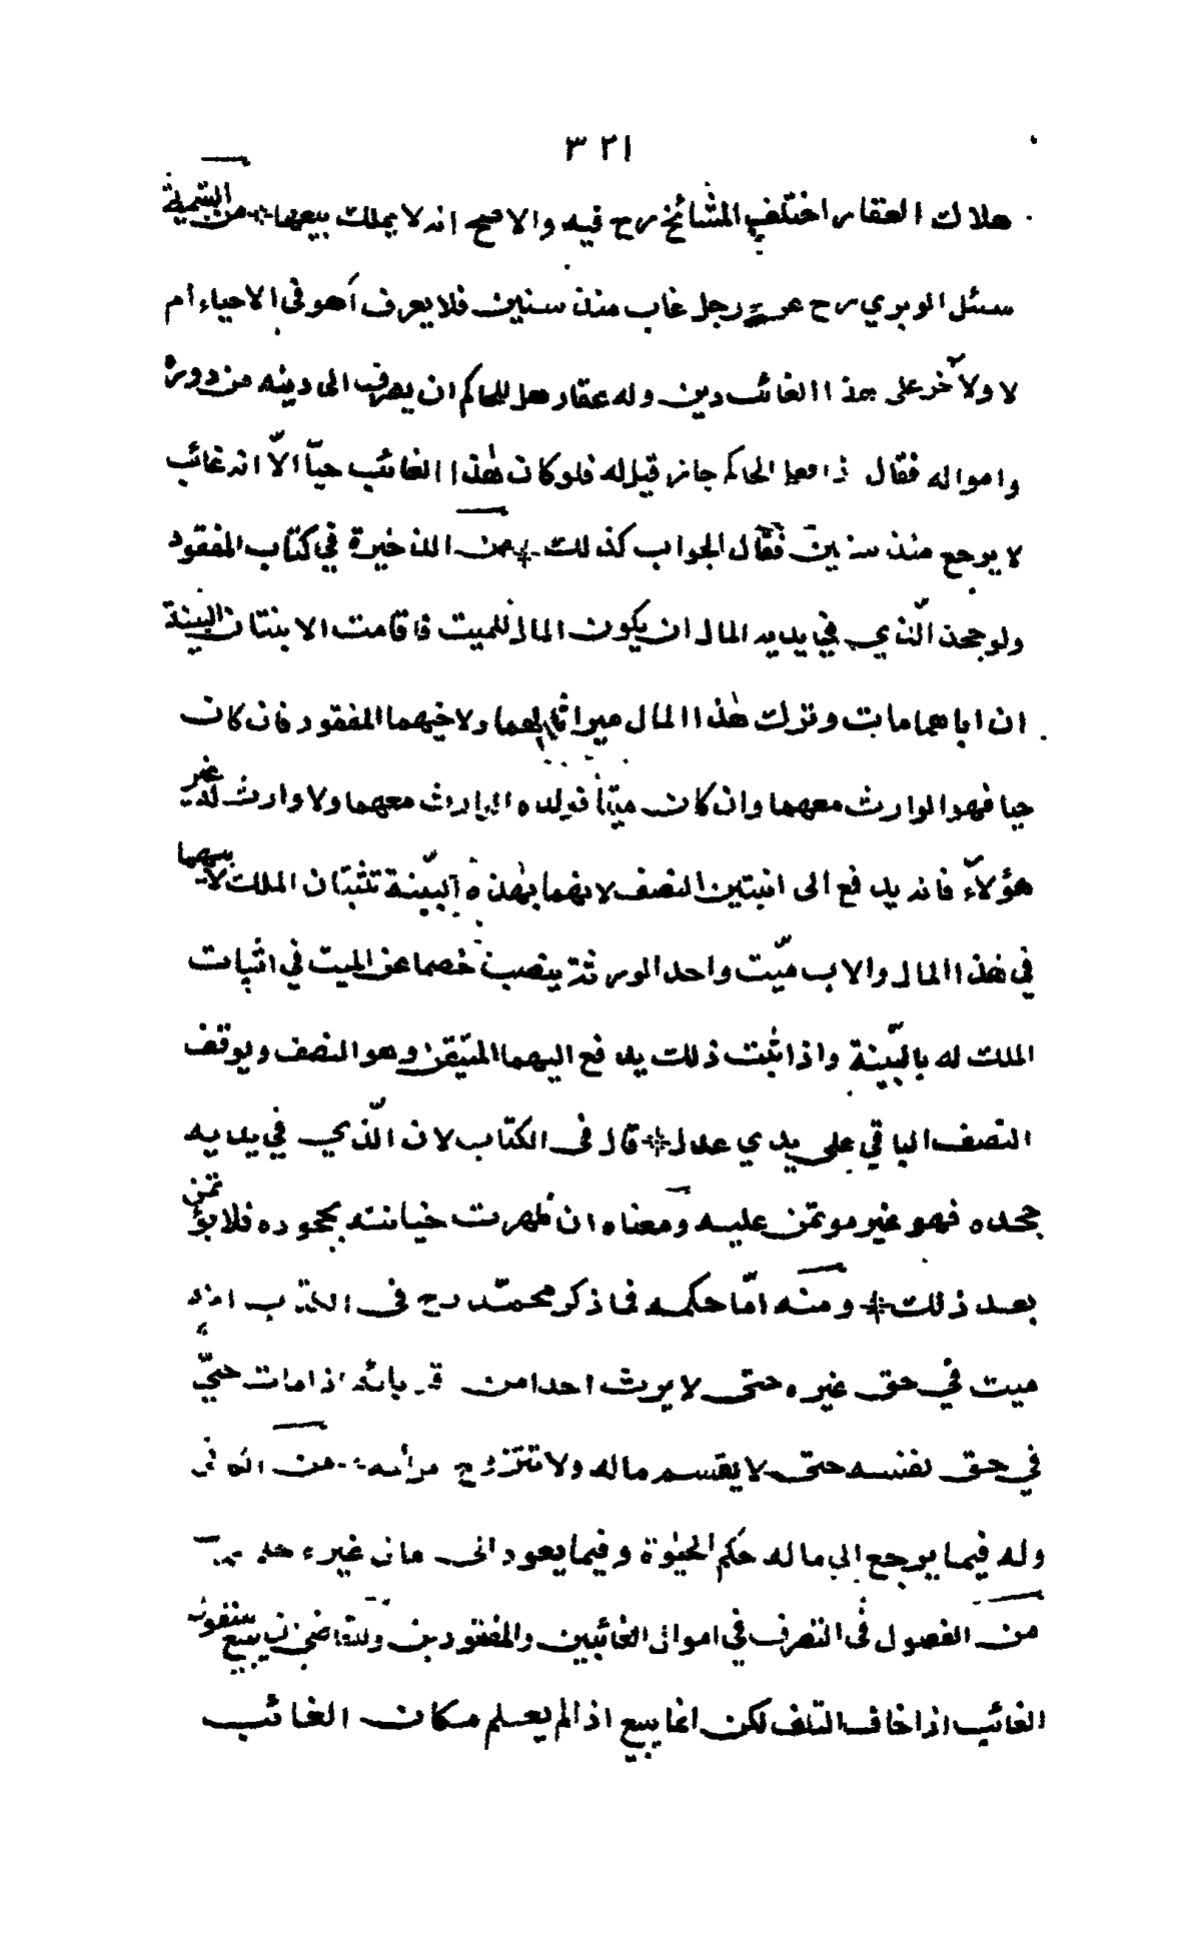 ٣٢١
هلاك العقار اختلف المشائخ رح فيه والاصح انه لا يملك بيعها * من اليتيمية
سئل الوبري رح عن رجل غاب منذ سنين فلا يعرف أهو في الاحياء أم
لا ولآخر على هذا الغائب دين وله عقار هل للحاكم ان يصرف الى دينه من دوره
وامواله فقال اذا فعل الحاكم جاز قيل له فلو كان هٰذا الغائب حيّا الاّ انه غائب
لا يرجع منذ سنين فقال الجواب كذلك * من الذخيرة في كتاب المفقود
ولو جحد الّذي في يديه المال ان يكون المال للميت فاقامت الابنتان البينة
ان اباهما مات وترك هٰذا المال ميراثا لهما ولاخيهما المفقود فان كان
حيا فهو الوارث معهما وان كان ميّتا فولده الوارث معهما ولا وارث له غير
هؤلاّء فانه يدفع الى ابنتين النصف لانهما بهٰذه البيّنة تثبتان الملك لابيهما
في هٰذا المال والاب ميّت واحد الورثة ينصب خصما عن الميت في اثبات
الملك له بالبيّنة واذا ثبت ذلك يدفع اليهما المتيقن وهو النصف ويوقف
النصف الباقي على يدي عدل * قال في الكتاب لان الّذي في يديه
جحده فهو غير موتمن عليه ومعناه ان ظهرت خيانته بجحوده فلا يؤتمن
بعد ذلك * ومنه امّا حكمه فما ذكر محمّد رح في الكتاب انه
ميت في حق غيره حتى لا يورث احدا من اقربائه اذا مات حيّ
في حق نفسه حتى لا يقسم ماله ولا تتزوج امرأته * من الكافي
وله فيما يرجع الى ماله حكم الحيٰوة وفيما يعود الى مال غيره حكم
من الفصول في التصرف في اموال الغائبين والمفقودين وللقاضي ان يبيع منقول
الغائب اذا خاف التلف لكن انما يبيع اذا لم يعلم مكان الغائب